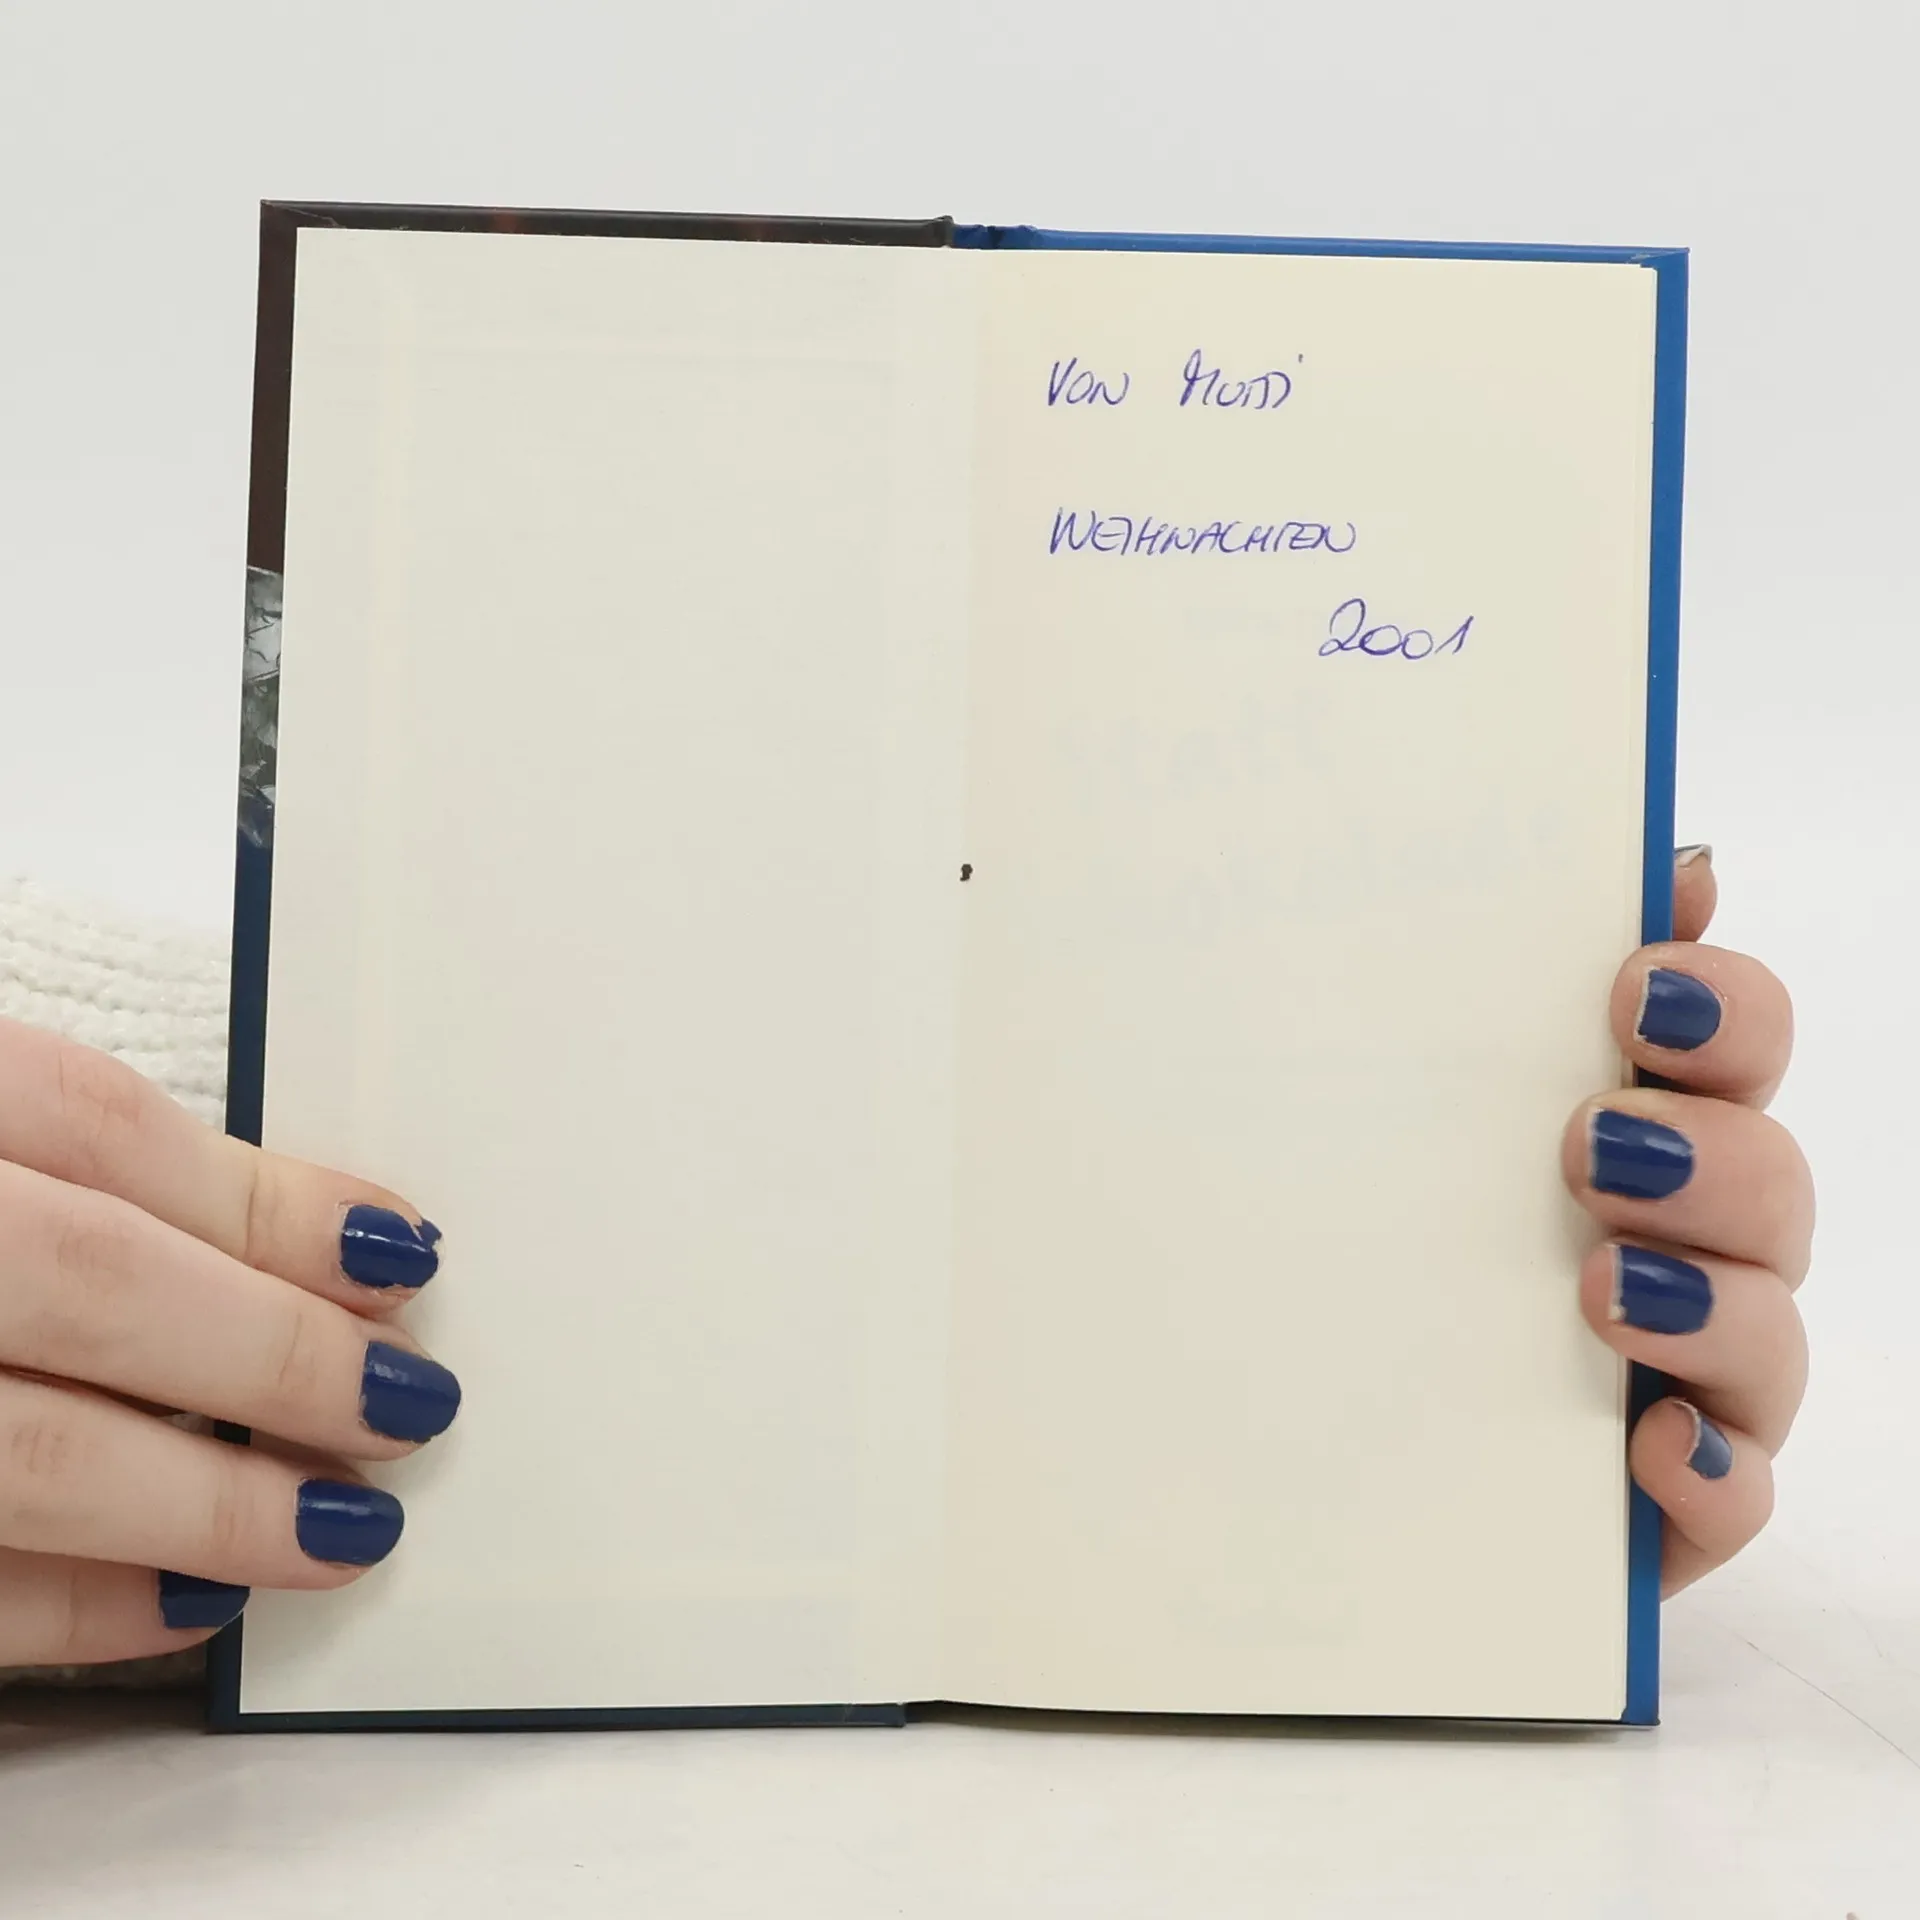 VON MUTTI
WEIHNACHTEN
2001